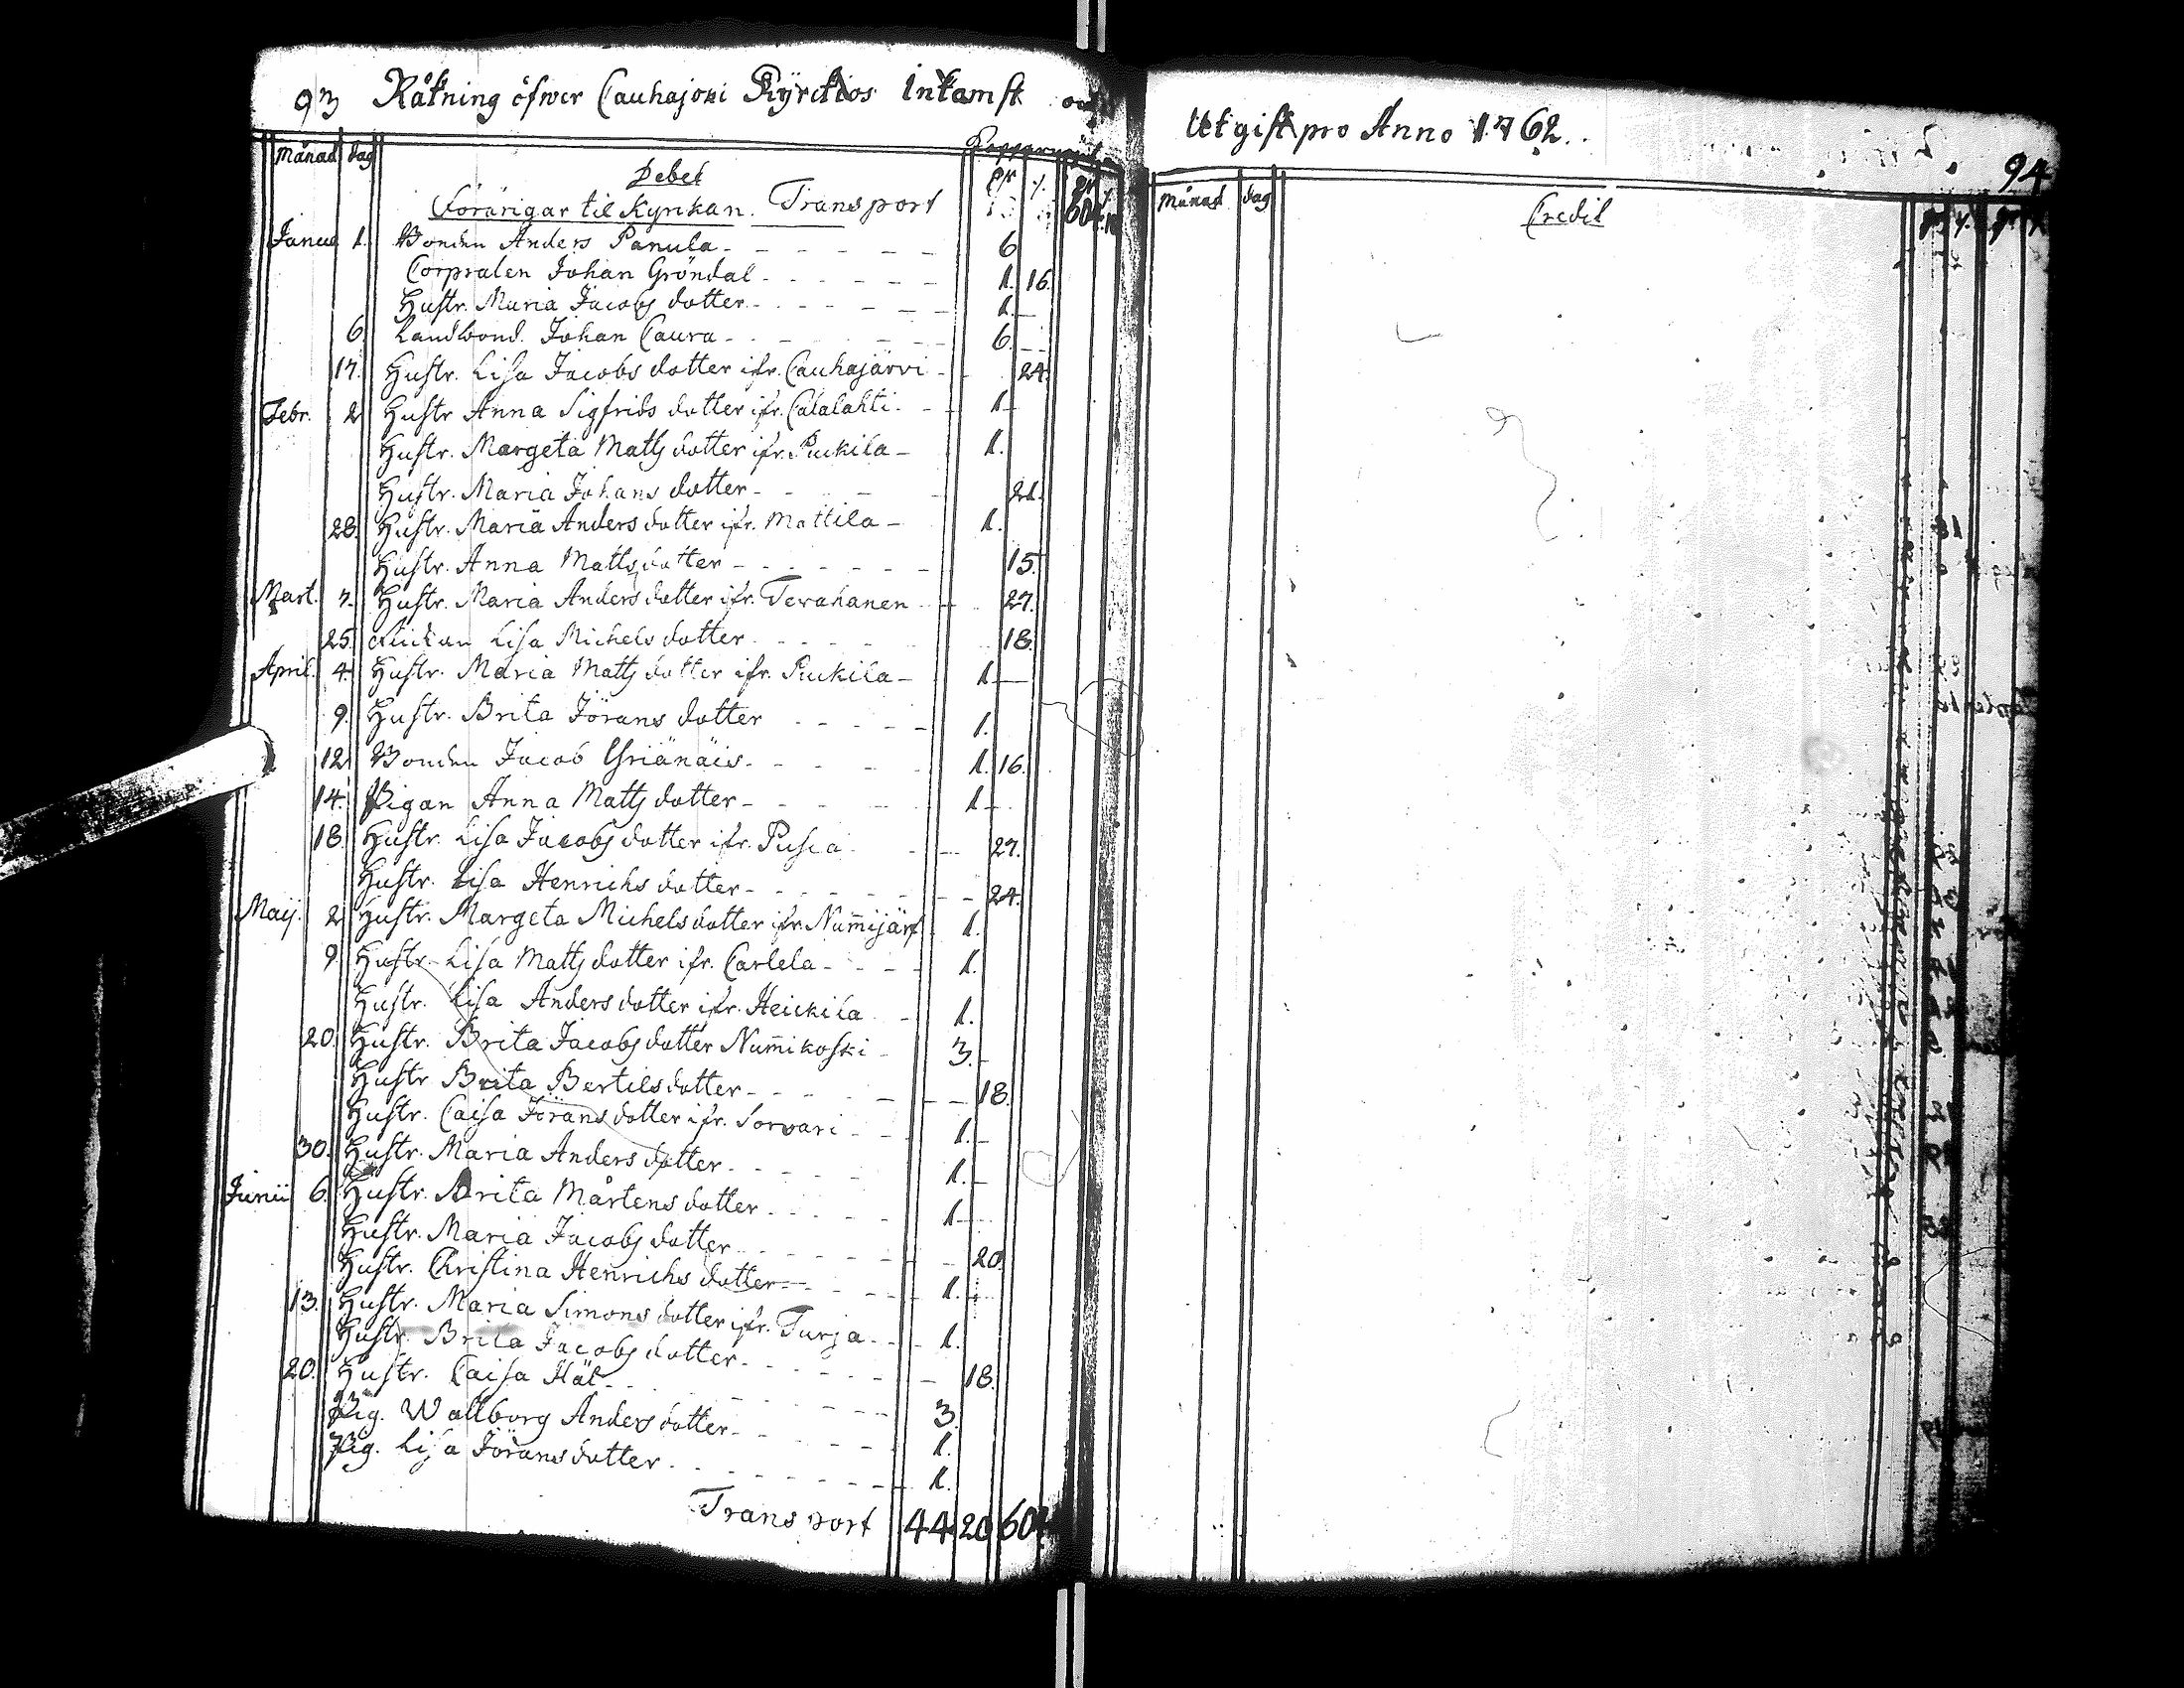 93 Räkning öfwer Cauhajoki Kyrckios Inkomst och
Månad dag Debet Kopparmynt
Förärigar til Kyrkan. Transport
Januar 1. Bonden Anders Panula 6
Corpralen Johan Gröndal 1. 16.
Hustr. Maria Jacobs dotter 1.
6. Landbond. Johan Caura 6.
17. Hustr. Lisa Jacobs dotter ifr. Cauhajärvi 24.
Febr. 2 Hustr Anna Sigfrids dotter ifr. Calalahti 1
Hustr. Margeta Matts dotter ifr. Puckila 1.
Hustr. Maria Johans dotter 21.
28. Hustr. Maria Anders dotter ifr. Mattila 1.
Hustr. Anna Matts dotter 15.
Mart. 7. Hustr. Maria Anders dotter ifr. Terwahanen 27.
25. Änckan Lisa Michels dotter 18.
April. 4. Hustr. Maria Matts dotter ifr. Puckila 1
9. Hustr. Brita Jörans dotter 1.
12 Bonden Jacob Yriänäis 1. 16.
14. Pigan Anna Matts dotter 1
18. Hustr. Lisa Jacobs dotter ifr. Pusea 27.
Hustr. Lisa Henrichs dotter 24.
Maij. 2 Hustr. Margeta Michels dotter ifr. Num̄ijärf 1.
9. Hustr. Lisa Matts dotter ifr. Carlela 1.
Hustr. Lisa Anders dotter ifr. Heickila 1.
20. Hustr. Brita Jacobs dotter Num̄ikoski 3.
Hustr Brita Bertils dotter 18.
Hustr. Caisa Jörans dotter ifr. Sorvari 1.
30. Hustr. Maria Anders dotter 1.
Junii 6. Hustr. Brita Mårtens dotter 1
Hustr. Maria Jacobs dotter 20.
Hustr. Christina Henrichs dotter 1.
13. Hustr. Maria Simons dotter ifr. Turja 1.
Hustr. Brita Jacobs dotter 18.
20. Hustr. Caisa Häl 3.
Pig. Wallborg Anders dotter 1.
Pig. Lisa Jörans dotter 1.
Transport 44 20 60
Utgift pro Anno 1762.
94
Månad dag Credit